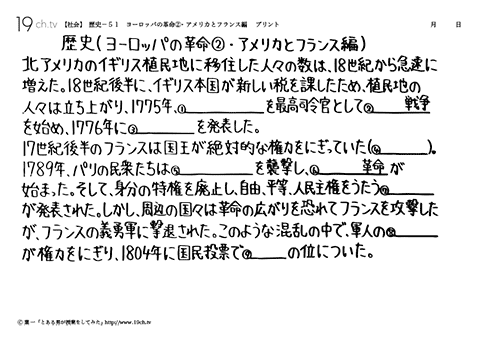 19ch.tv 【社会】 歴史-51 ヨーロッパの革命②・アメリカとフランス編 プリント 月 日
歴史(ヨーロッパの革命②・アメリカとフランス編)
北アメリカのイギリス植民地に移住した人々の数は、18世紀から急速に
増えた。18世紀後半に、イギリス本国が新しい税を課したため、植民地の
人々は立ち上がり、1775年、①______を最高司令官として②___戦争
を始め、1776年に③______を発表した。
17世紀後半のフランスは国王が絶対的な権力をにぎっていた(④______)。
1789年、パリの民衆たちは⑤______を襲撃し、⑥______革命が
始まった。そして、身分の特権を廃止し、自由、平等、人民主権をうたう⑦______
が発表された。しかし、周辺の国々は革命の広がりを恐れてフランスを攻撃した
が、フランスの義勇軍に撃退された。このような混乱の中で、軍人の⑧______
が権力をにぎり、1804年に国民投票で⑨____の位についた。
© 葉一「とある男が授業をしてみた」http://www.19ch.tv